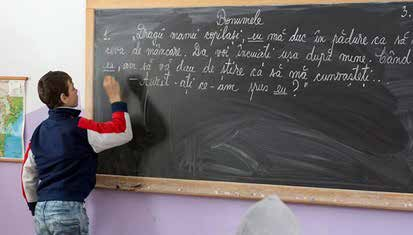 Pronumele
3.
1. „Dragii mamei copilași, eu mă duc în pădure ca să
ceva de mâncare. Da voi încuieți ușa după mine. Când
eu, am să vă dau de știre ca să mă cunoașteți...
– Auzit-ați ce-am spus eu?"